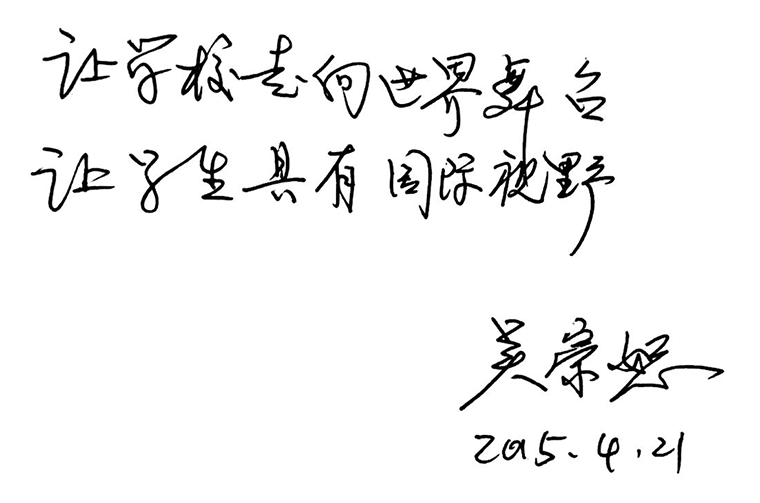 让学校走向世界舞台
让学生具有国际视野
吴宗恕
2015.4.21